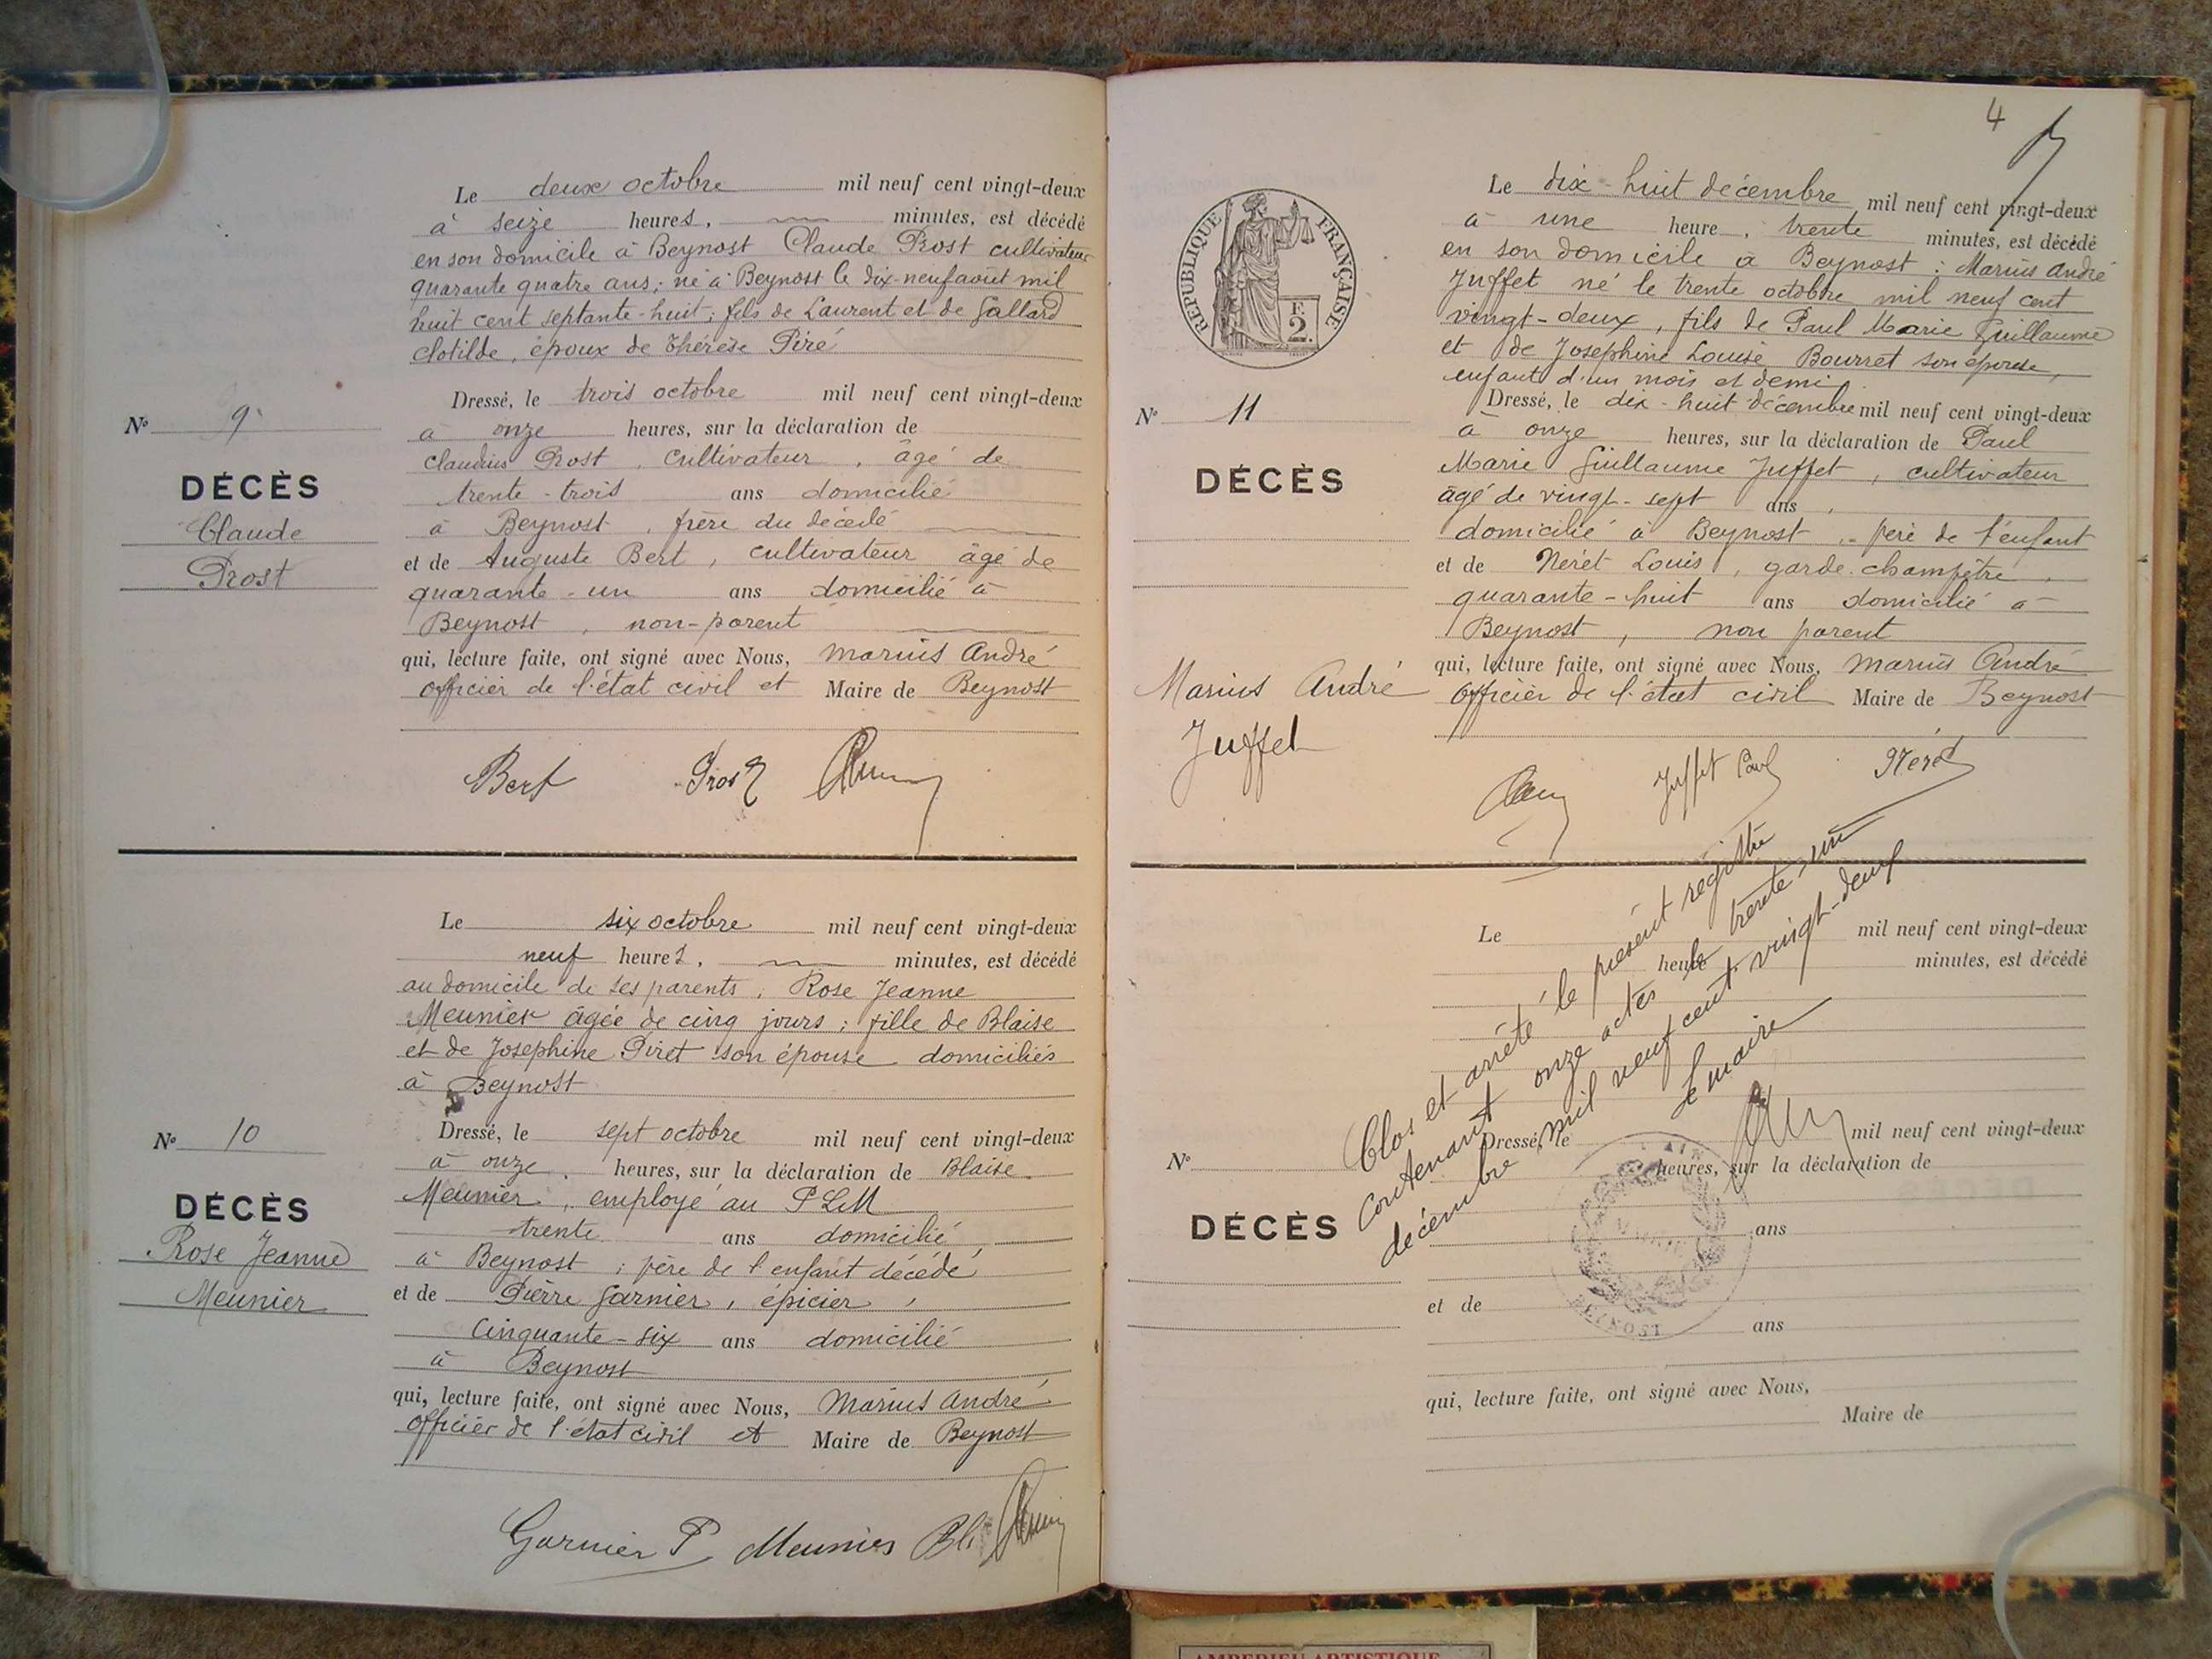 Le deux octobre mil neuf cent vingt-deux
à seize heures, minutes, est décédé
en son domicile à Beynost Claude Prost cultivateur
quarante quatre ans; né à Beynost le dix-neuf août mil
huit cent septante-huit; fils de Laurent et de Gallard
Clotilde, époux de Thérèse Piré
Dressé, le trois octobre mil neuf cent vingt-deux
à onze heures, sur la déclaration de
Claudius Prost, cultivateur, âgé de
trente-trois ans domicilié
à Beynost, frère du décédé
et de Auguste Bert, cultivateur âgé de
quarante-un ans domicilié à
Beynost, non-parent
qui, lecture faite, ont signé avec Nous, Marius André
officier de l'état civil et Maire de Beynost
No 9
DÉCÈS
Claude
Prost
Bert Prost
Le six octobre mil neuf cent vingt-deux
neuf heures, minutes, est décédé
au domicile de ses parents, Rose Jeanne
Meunier âgée de cinq jours; fille de Blaise
et de Josephine Piret son épouse domiciliés
à Beynost
Dressé, le sept octobre mil neuf cent vingt-deux
à onze heures, sur la déclaration de Blaise
Meunier, employé au PLM
trente ans domicilié
à Beynost; père de l'enfant décédé
et de Pierre Garnier, épicier,
cinquante-six ans domicilié
à Beynost
qui, lecture faite, ont signé avec Nous, Marius André
officier de l'état civil et Maire de Beynost
No 10
DÉCÈS
Rose Jeanne
Meunier
Garnier P Meunier
4
RÉPUBLIQUE FRANÇAISE
F.
2.
Le dix-huit décembre mil neuf cent vingt-deux
à une heure, trente minutes, est décédé
en son domicile à Beynost: Marius André
Juffet né le trente octobre mil neuf cent
vingt-deux, fils de Paul Marie Guillaume
et de Josephine Louise Bourret son épouse,
enfant d'un mois et demi.
Dressé, le dix-huit décembre mil neuf cent vingt-deux
à onze heures, sur la déclaration de Paul
Marie Guillaume Juffet, cultivateur
âgé de vingt-sept ans,
domicilié à Beynost, père de l'enfant
et de Nerét Louis, garde-champêtre,
quarante-huit ans domicilié à
Beynost, non parent
qui, lecture faite, ont signé avec Nous, Marius André
officier de l'état civil Maire de Beynost
No 11
DÉCÈS
Marius André
Juffet
Juffet Paul Neret
Clos et arrêté le présent registre
contenant onze actes le trente-un
décembre mil neuf cent vingt-deux
Le maire
Le mil neuf cent vingt-deux
heure minutes, est décédé
Dressé, le mil neuf cent vingt-deux
heures, sur la déclaration de
ans
et de
ans
qui, lecture faite, ont signé avec Nous,
Maire de
No
DÉCÈS
BEYNOST
AMBERIEU ARTISTIQUE